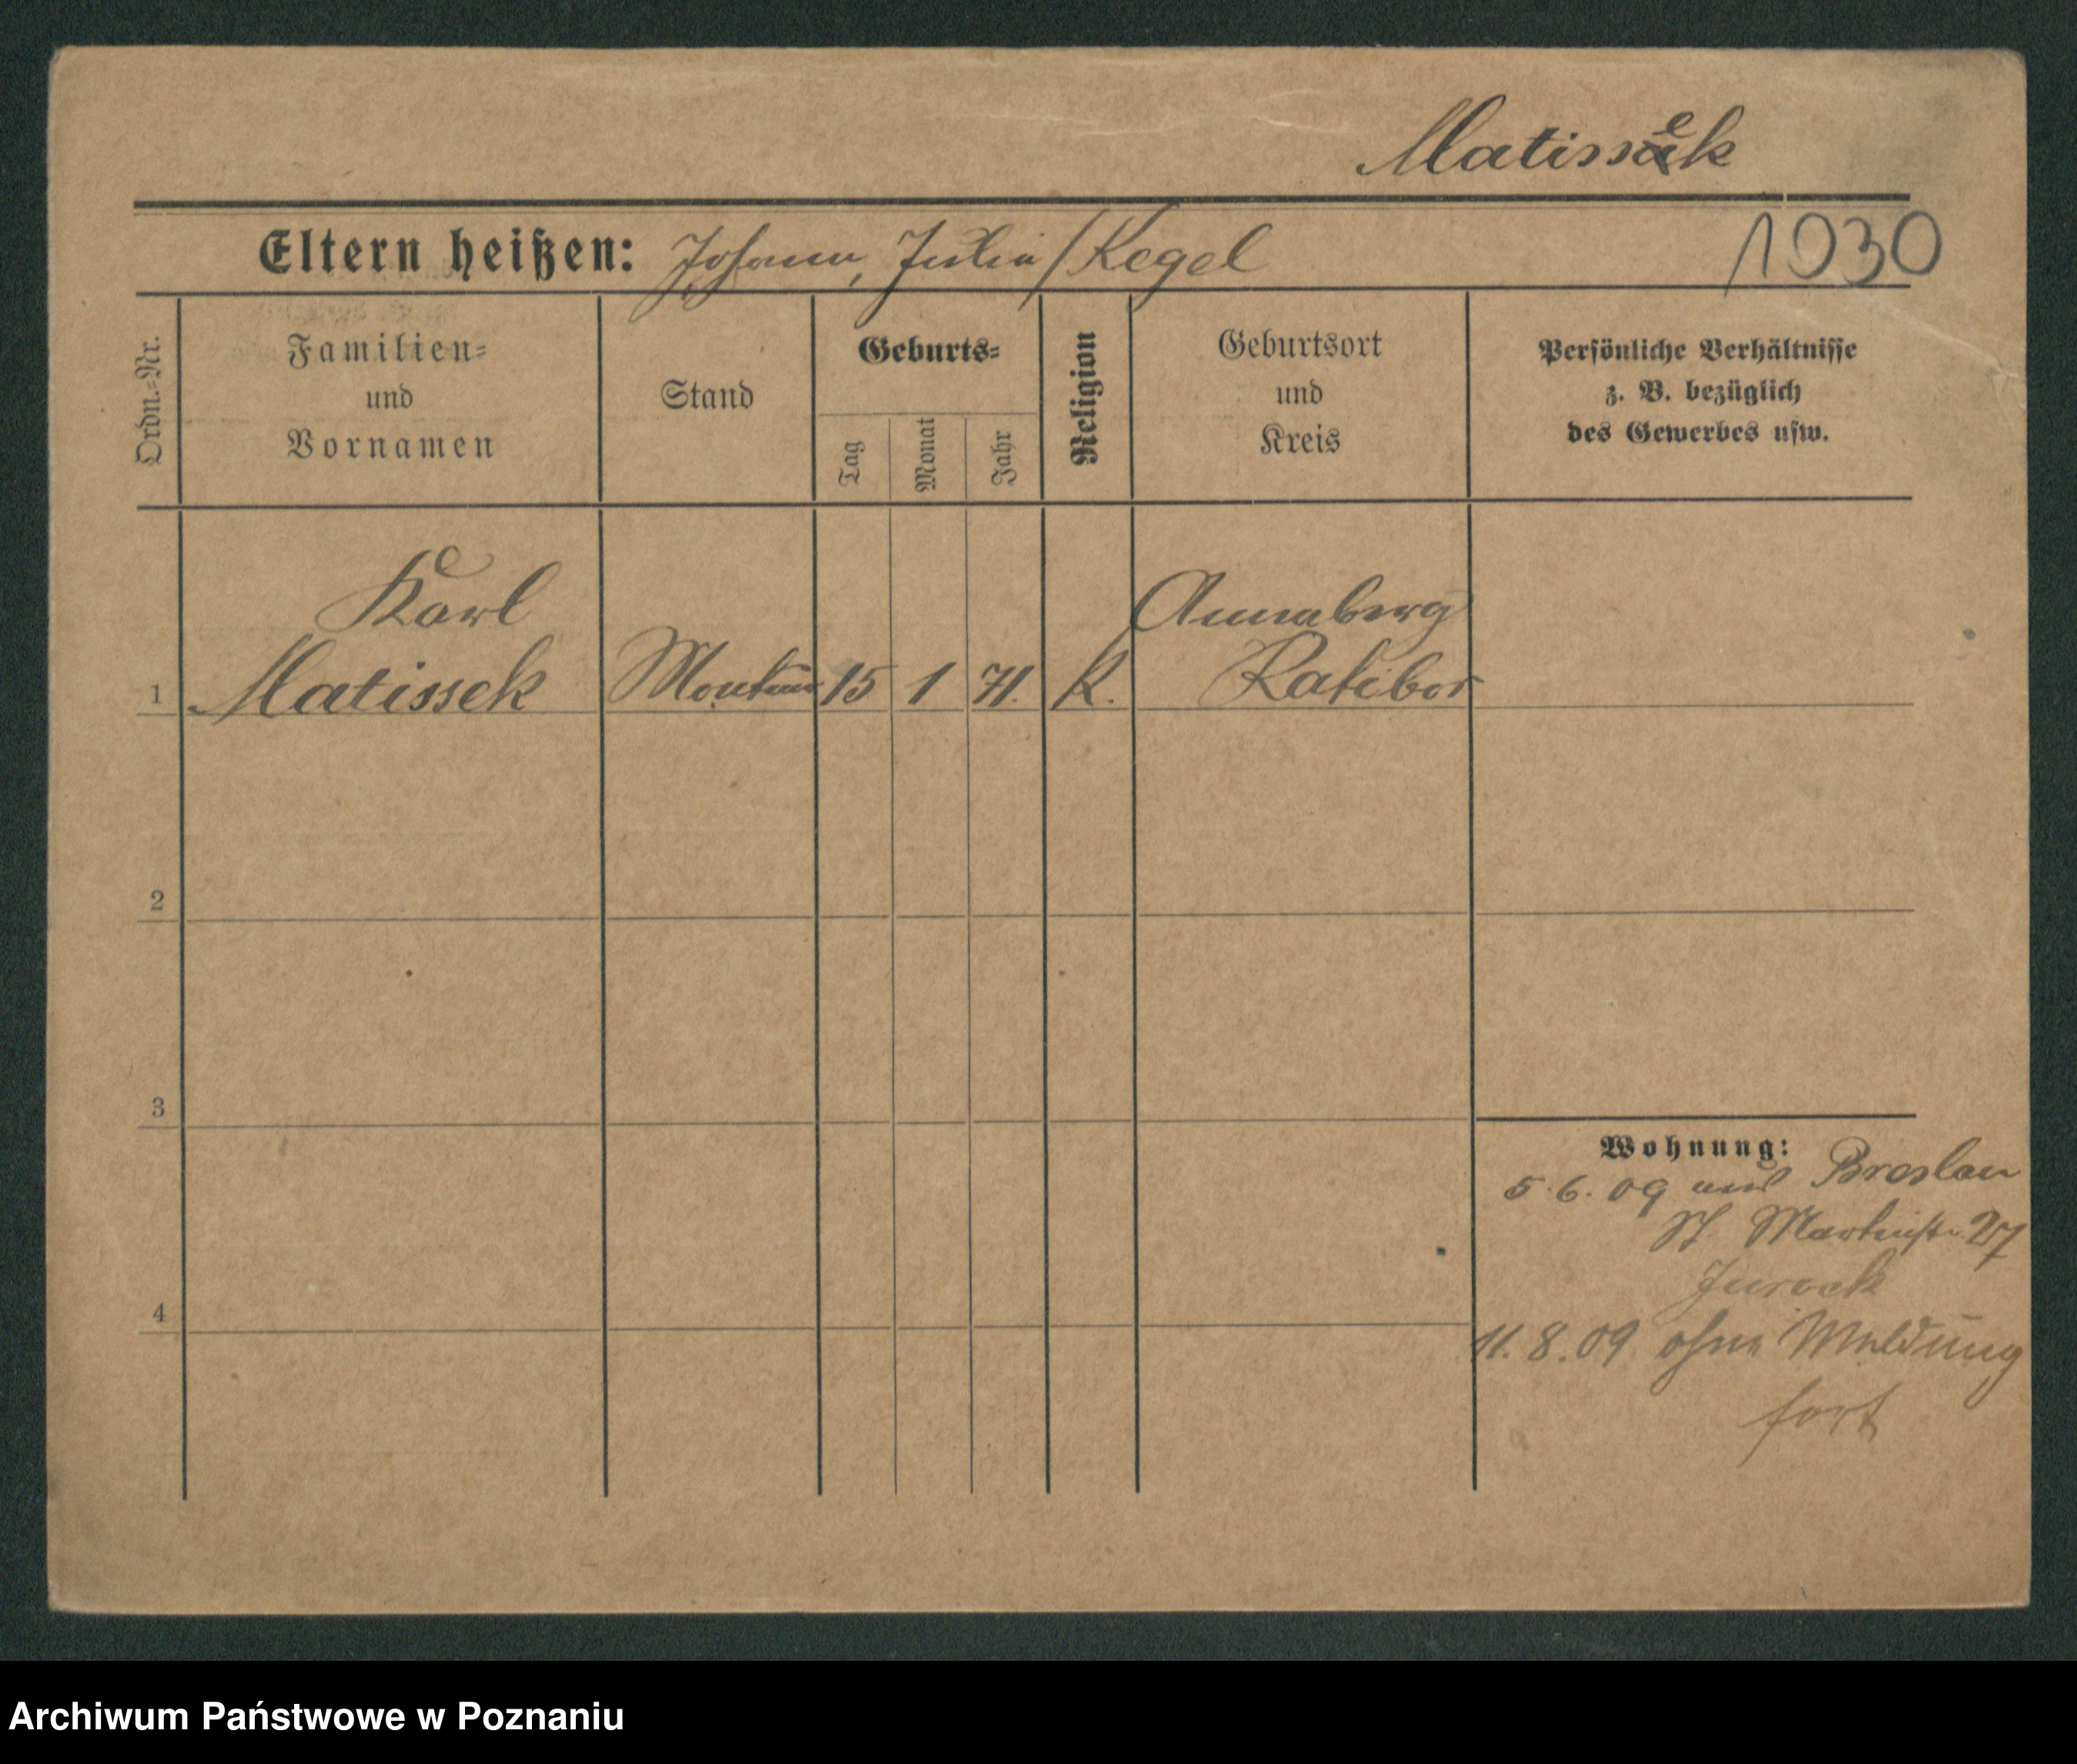 Matissek
Eltern heißen: Johann, Julia / Kegel
1030
Ordn.=Nr.
Familien=
und
Vornamen
Stand
Geburts=
Tag
Monat
Jahr
Religion
Geburtsort
und
Kreis
Persönliche Verhältnisse
z. B. bezüglich
des Gewerbes usw.
Karl Annaberg
1 Matissek Monteur 15 1 71. k. Ratibor
2
3
4
Wohnung:
5.6.09 aus Breslau
St. Martinstr. 27
11.8.09 ohne Meldung
fort
Archiwum Państwowe w Poznaniu